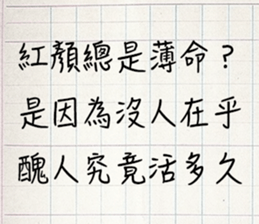 紅顏總是薄命？
是因為沒人在乎
醜人究竟活多久